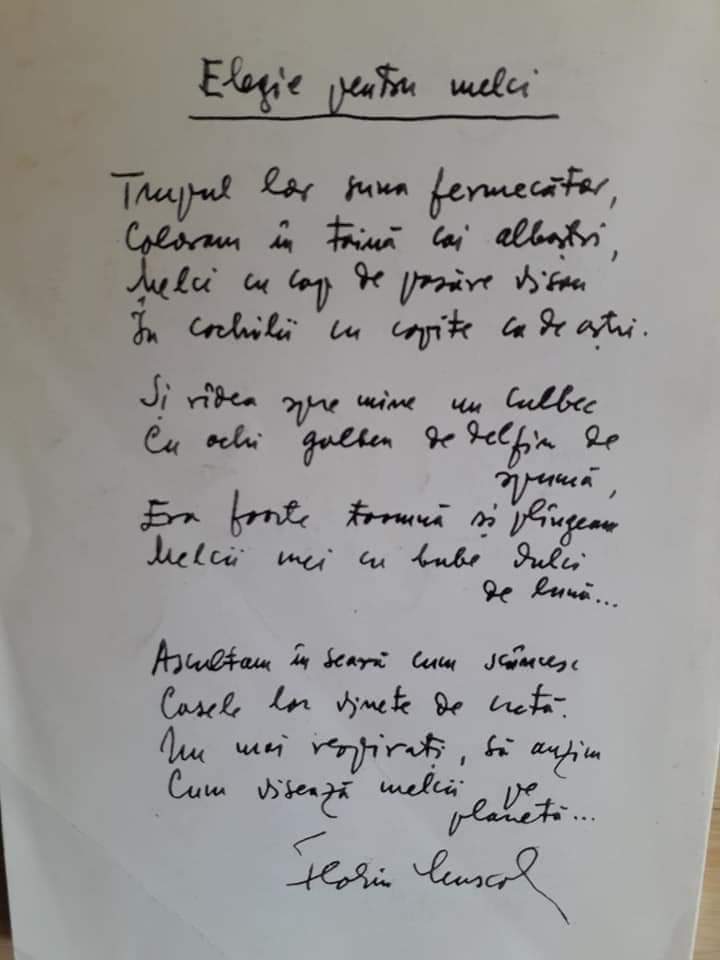 Elegie pentru melci
Trupul lor suna fermecător,
Coloram în taină cai albaștri,
Melci cu cap de pasăre visau
În cochilii cu copite ca de aștri.
Și rîdea spre mine un culbec
Cu ochi galben de delfin de
spumă,
Era foarte toamnă și plîngeam
Melcii mei cu bube dulci
de lună...
Ascultam în seară cum scâncesc
Casele lor vinete de cretă.
Nu mai respirați, să auzim
Cum visează melcii pe
planetă...
Florin